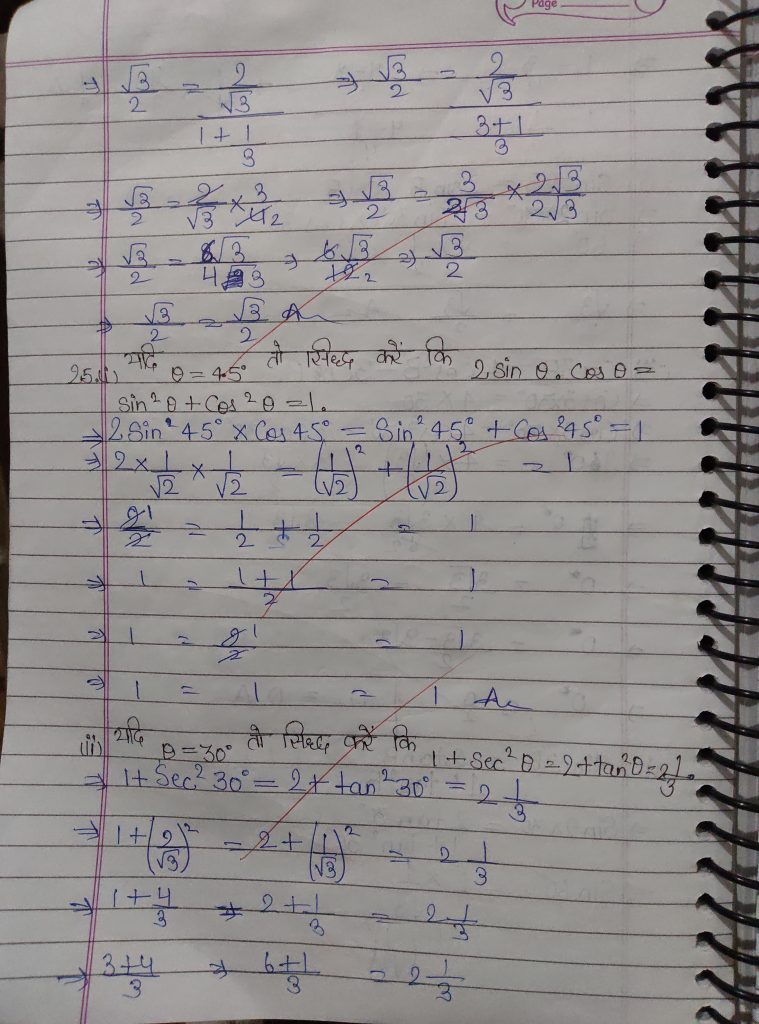 Page
⇒ √3/2 = (2/√3)/(1+1/3) ⇒ √3/2 = (2/√3)/((3+1)/3)
⇒ √3/2 = 2/√3 × 3/4 2 ⇒ √3/2 = 3/2√3 × 2√3/2√3
⇒ √3/2 = 6√3/4 3 ⇒ 6√3/12 2 ⇒ √3/2
⇒ √3/2 = √3/2 A
25.(i) यदि θ = 45° तो सिद्ध करें कि 2 sin θ . Cos θ =
sin²θ + Cos²θ = 1.
⇒ 2 Sin² 45° × Cos 45° = Sin² 45° + Cos² 45° = 1
⇒ 2 × 1/√2 × 1/√2 = (1/√2)² + (1/√2)² = 1
⇒ 2 1/2 = 1/2 + 1/2 = 1
⇒ 1 = (1+1)/2 = 1
⇒ 1 = 2 1/2 = 1
⇒ 1 = 1 = 1 A
(ii) यदि θ = 30° तो सिद्ध करें कि 1 + Sec²θ = 2 + tan²θ = 2 1/3.
⇒ 1 + Sec² 30° = 2 + tan² 30° = 2 1/3
⇒ 1 + (2/√3)² = 2 + (1/√3)² = 2 1/3
⇒ 1 + 4/3 ⇒ 2 + 1/3 = 2 1/3
⇒ (3+4)/3 ⇒ (6+1)/3 = 2 1/3